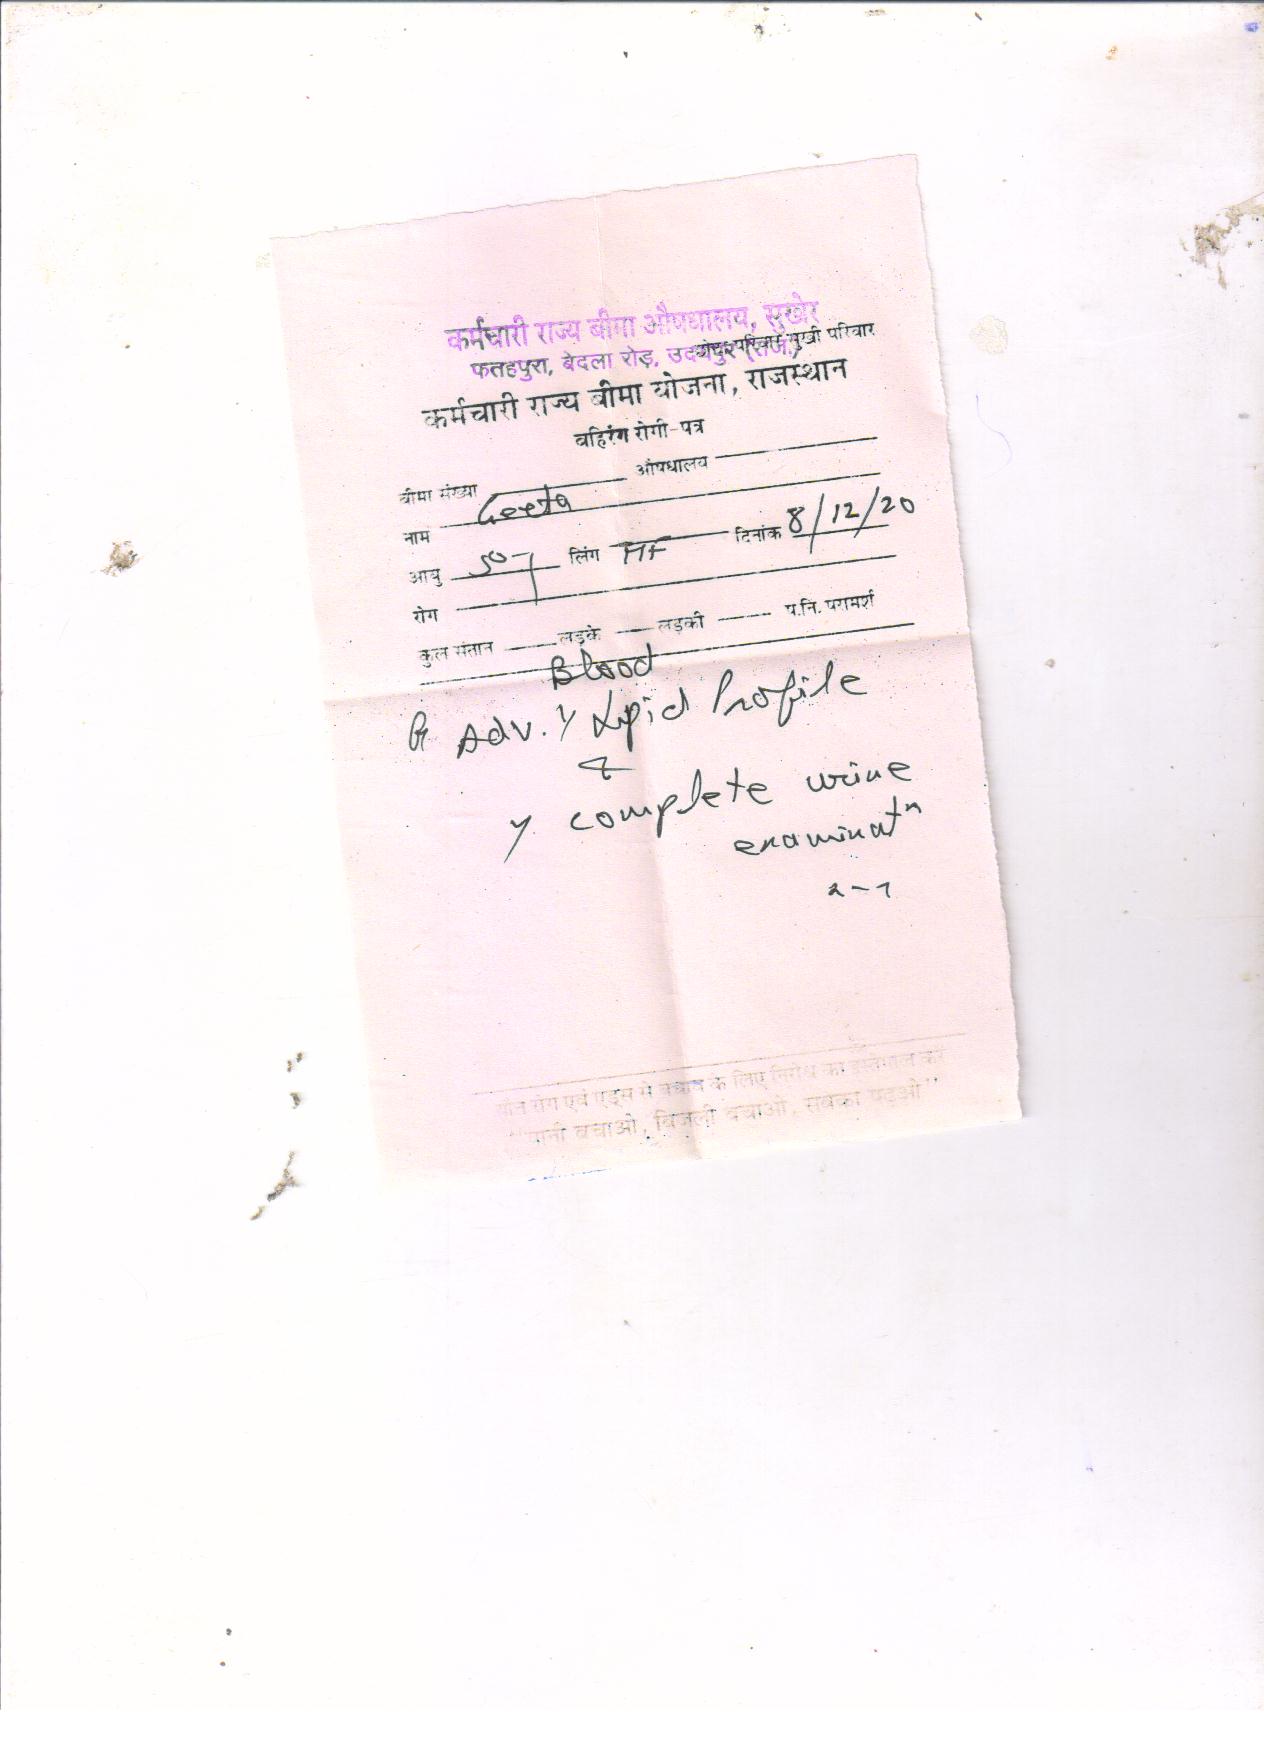 कर्मचारी राज्य बीमा औषधालय, सुखेर
परिवार सुखी परिवार
फतहपुरा, बेदला रोड़, उदयपुर (राज.)
कर्मचारी राज्य बीमा योजना, राजस्थान
वहिरंग रोगी-पत्र
बीमा संख्या औषधालय
नाम Geeta
आयु 50 लिंग F दिनांक 8/12/20
रोग
कुल संतान लड़के लड़की प.नि. परामर्श
Blood
Adv. Lipid Profile
&
complete urine
examinatn
यौन रोग एवं एड्स से बचाव के लिए निरोध का इस्तेमाल करें
"पानी बचाओ, बिजली बचाओ, सबको पढ़ाओ"